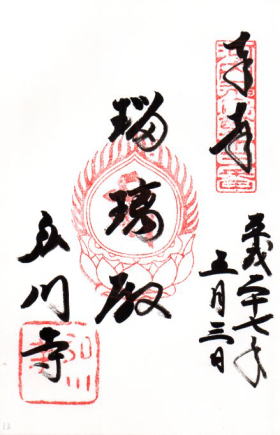 奉拝
平成二十七年
五月三日
瑠璃殿
川寺